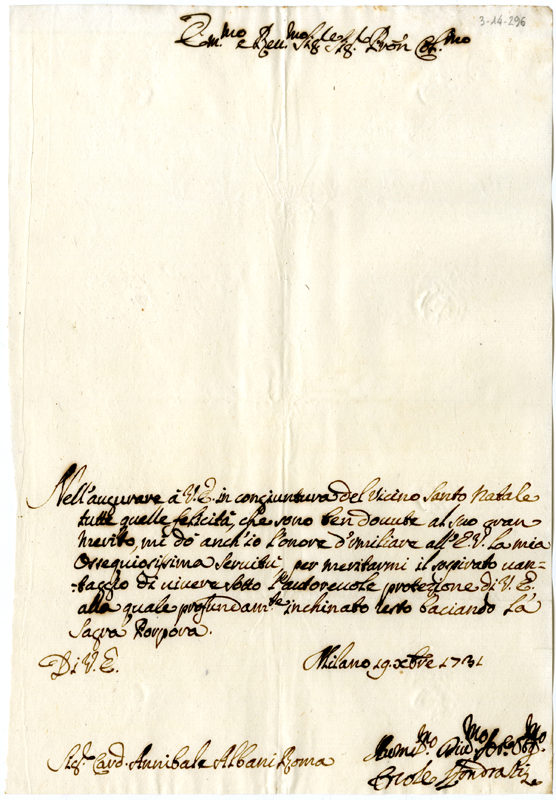 3-14-296
Em.mo e Reu.mo Sig.re Sig.re Pron Col.mo
Nell'augurare à V. E. in congiuntura del vicino Santo Natale
tutte quelle felicità, che sono ben douute al suo gran
merito, mi dò anch'io l'onore d'umiliare all'E. V. la mia
ossequiosissima seruitù per meritarmi il sospirato uan=
=taggio di uiuere sotto l'autoreuole protezione di V. E,
alla quale profundam.te inchinato resto baciando la
Sacra Porpora.
Di V. E.
Milano 19 xbre 1731
Sig.r Card. Annibale Albani Roma
Humil.mo Diu.mo Obl.mo
Ercole